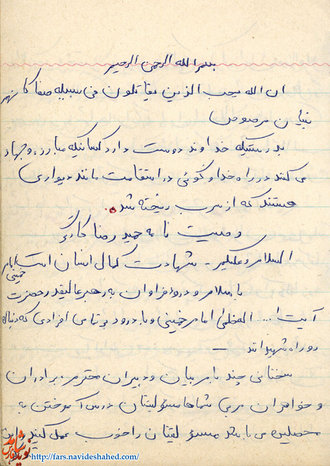 بسم الله الرحمن الرحیم
ان الله یحب الذین یقاتلون فی سبیله صفا کانهم
بنیان مرصوص
بدرستیکه خداوند دوست دارد کسانیکه مبارزه و جهاد
می کنند در راه خدا و گوئی در استقامت مانند دیواری
هستند که از سرب ریخته شده
وصیت نامه حمید رضا کارگر
السلام و علیکم - شهادت کمال انسان است امام خمینی
با سلام و درود فراوان به رهبر عالیقدر حضرت
آیت ا... العظمی امام خمینی و با درود بر تمامی افرادی که دنباله
رو راه شهدا اند -
سخنانی چند با مربیان و دبیران محترم برادران
و خواهران مربی شما ها مسئولیتتان درس آموختن به
محصلین می باشد مسئولیتتان را خوب عمل کنید
نوید شاهد
https://fars.navideshahed.com/